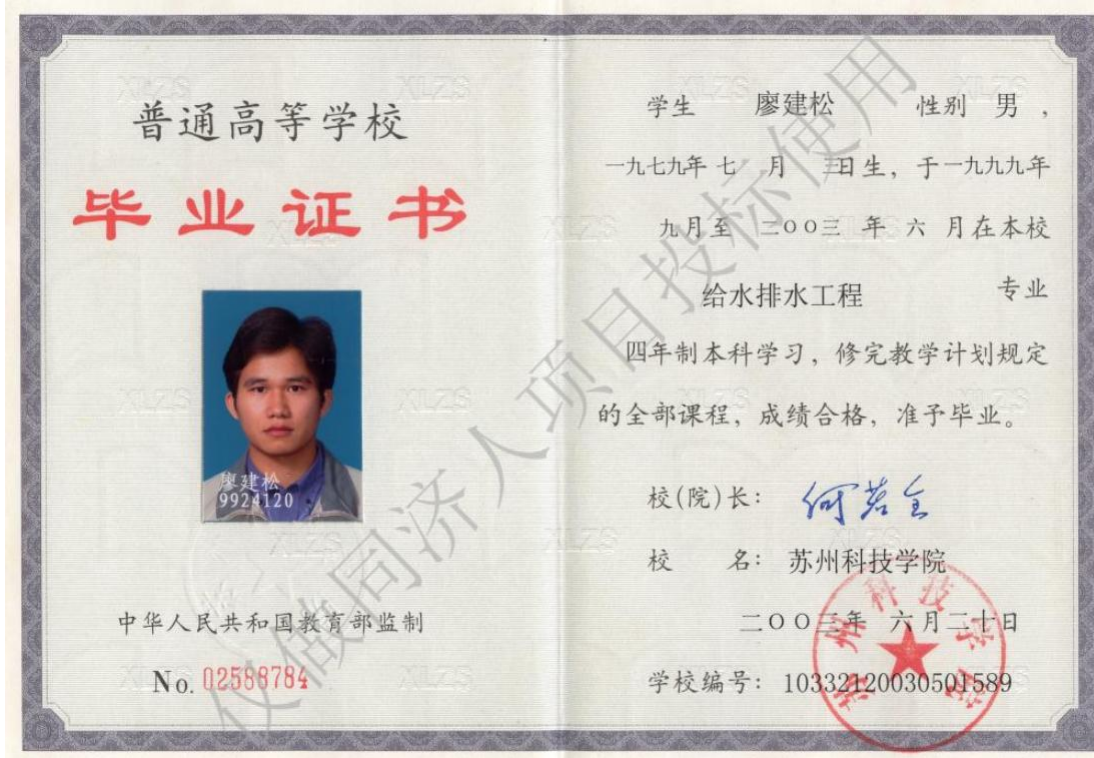 普通高等学校
毕业证书
廖建松
9924120
中华人民共和国教育部监制
No. 02588784
学生 廖建松 性别 男，
一九七九年 七 月 三日生，于一九九九年
九月至 二○○三 年 六 月在本校
给水排水工程 专业
四年制本科学习，修完教学计划规定
的全部课程，成绩合格，准予毕业。
校(院)长： 何若全
校 名： 苏州科技学院
二○○三年 六月二十日
学校编号： 10332120030501589
苏州科技学院
仅做同济人项目投标使用
XLZS